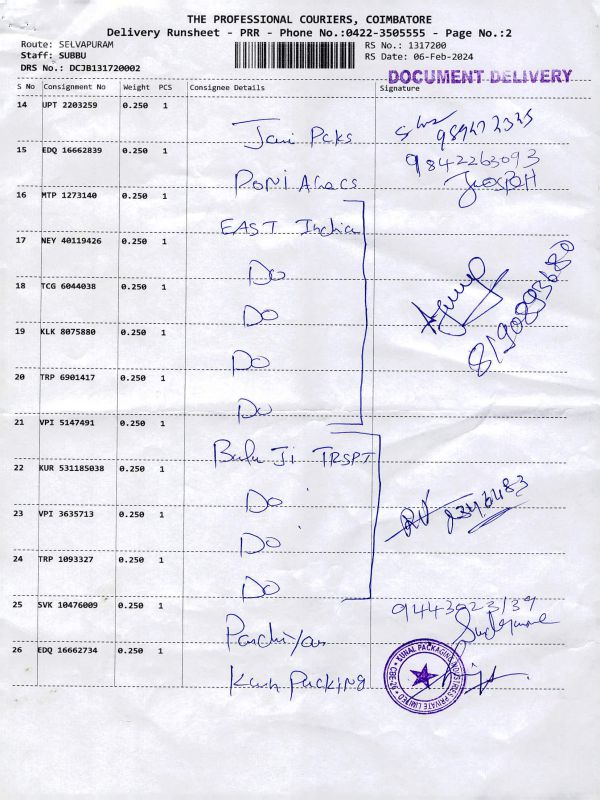 THE PROFESSIONAL COURIERS, COIMBATORE
Delivery Runsheet - PRR - Phone No.:0422-3505555 - Page No.:2
Route: SELVAPURAM
Staff: SUBBU
DRS No.: DCJB131720002
RS No.: 1317200
RS Date: 06-Feb-2024
DOCUMENT DELIVERY
S No Consignment No Weight PCS Consignee Details Signature
14 UPT 2203259 0.250 1
15 EDQ 16662839 0.250 1
9842263093
16 MTP 1273140 0.250 1
EAST India
17 NEY 40119426 0.250 1
Do
18 TCG 6044038 0.250 1
Do
19 KLK 8075880 0.250 1
Do
8190893680
20 TRP 6901417 0.250 1
Do
21 VPI 5147491 0.250 1
TRSPT
22 KUR 531185038 0.250 1
Do
23 VPI 3635713 0.250 1
Do
24 TRP 1093327 0.250 1
Do
25 SVK 10476009 0.250 1
9443023139
26 EDQ 16662734 0.250 1
Packing
KUNAL PACKAGING INDUSTRIES PRIVATE LIMITED